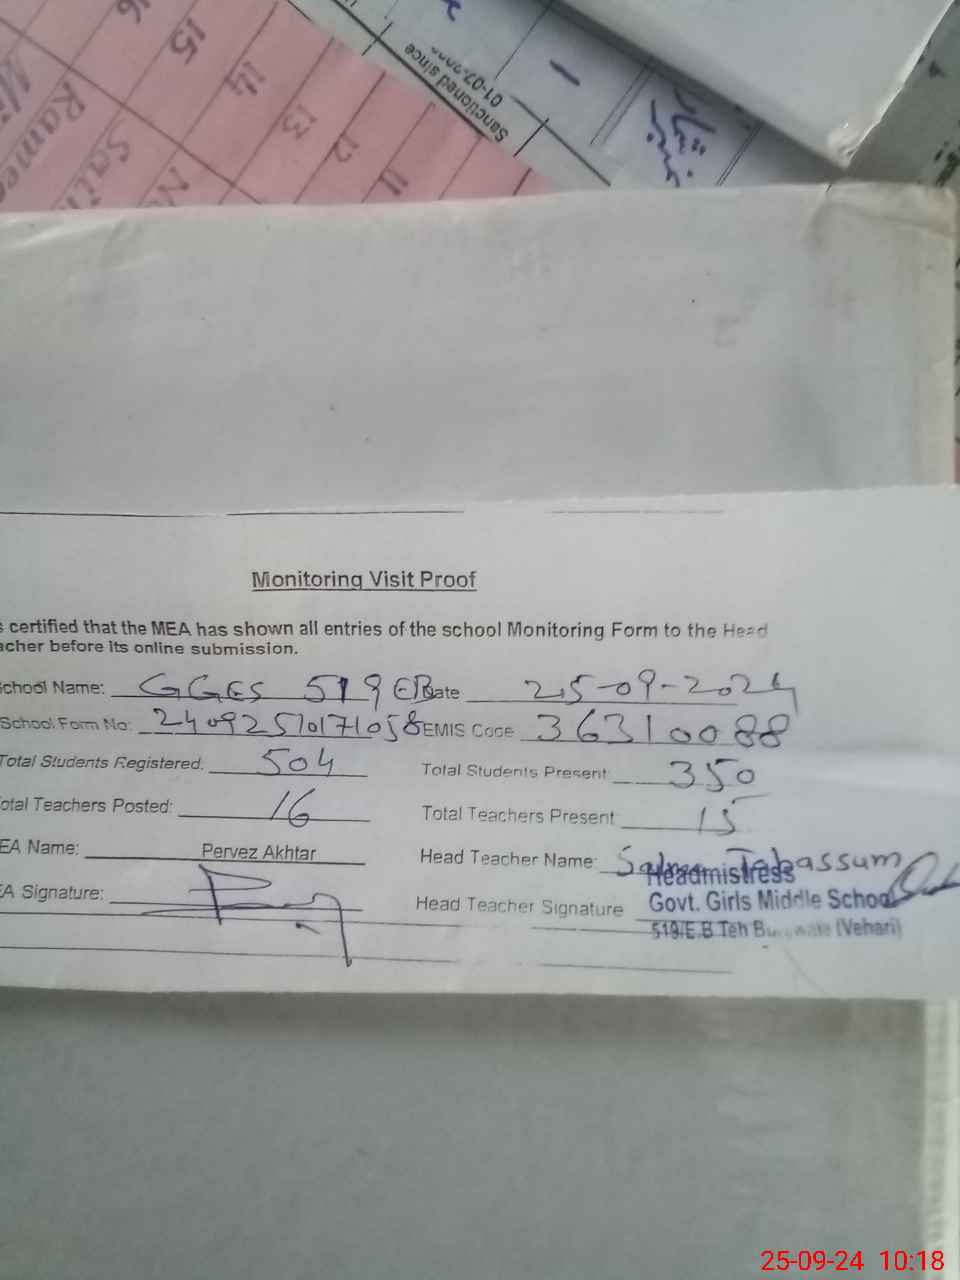 16
15
14
13
12
11
Sanctioned since
Monitoring Visit Proof
certified that the MEA has shown all entries of the school Monitoring Form to the Head
acher before its online submission.
chool Name: GGES 519 EB Date 25-09-2024
School Form No: 24092510171058 EMIS Code 36310088
Total Students Registered: 504 Total Students Present: 350
otal Teachers Posted: 16 Total Teachers Present 15
EA Name: Pervez Akhtar Head Teacher Name: Tabassum
Headmistress
A Signature: Head Teacher Signature Govt. Girls Middle School
519/E.B Teh (Vehari)
25-09-24 10:18